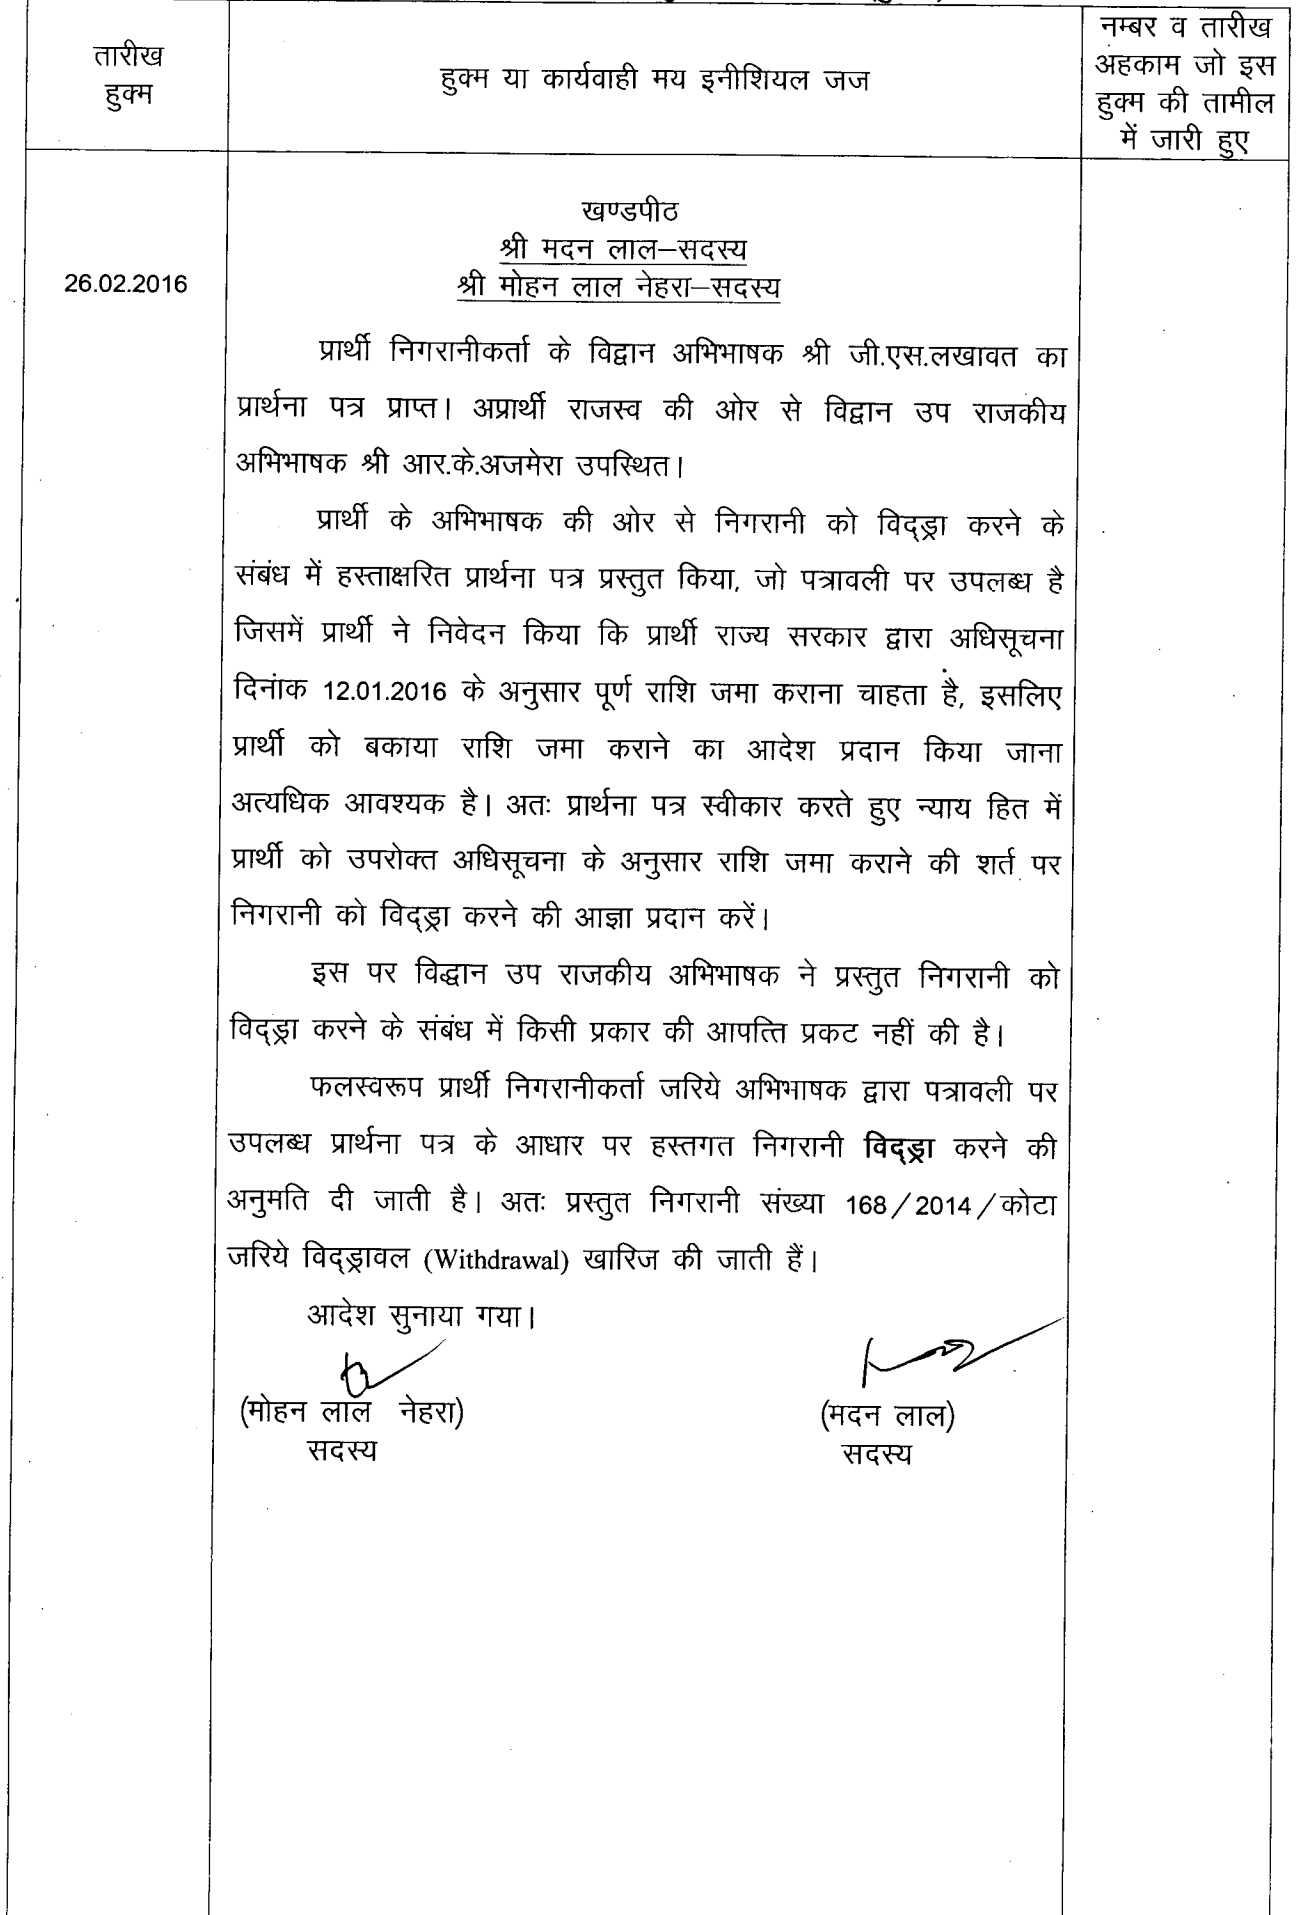 तारीख
हुक्म
हुक्म या कार्यवाही मय इनीशियल जज
नम्बर व तारीख
अहकाम जो इस
हुक्म की तामील
में जारी हुए
खण्डपीठ
श्री मदन लाल–सदस्य
26.02.2016
श्री मोहन लाल नेहरा–सदस्य
प्रार्थी निगरानीकर्ता के विद्वान अभिभाषक श्री जी.एस.लखावत का
प्रार्थना पत्र प्राप्त। अप्रार्थी राजस्व की ओर से विद्वान उप राजकीय
अभिभाषक श्री आर.के.अजमेरा उपस्थित।
प्रार्थी के अभिभाषक की ओर से निगरानी को विद्ड्रा करने के
संबंध में हस्ताक्षरित प्रार्थना पत्र प्रस्तुत किया, जो पत्रावली पर उपलब्ध है
जिसमें प्रार्थी ने निवेदन किया कि प्रार्थी राज्य सरकार द्वारा अधिसूचना
दिनांक 12.01.2016 के अनुसार पूर्ण राशि जमा कराना चाहता है, इसलिए
प्रार्थी को बकाया राशि जमा कराने का आदेश प्रदान किया जाना
अत्यधिक आवश्यक है। अतः प्रार्थना पत्र स्वीकार करते हुए न्याय हित में
प्रार्थी को उपरोक्त अधिसूचना के अनुसार राशि जमा कराने की शर्त पर
निगरानी को विद्ड्रा करने की आज्ञा प्रदान करें।
इस पर विद्धान उप राजकीय अभिभाषक ने प्रस्तुत निगरानी को
विद्ड्रा करने के संबंध में किसी प्रकार की आपत्ति प्रकट नहीं की है।
फलस्वरूप प्रार्थी निगरानीकर्ता जरिये अभिभाषक द्वारा पत्रावली पर
उपलब्ध प्रार्थना पत्र के आधार पर हस्तगत निगरानी विद्ड्रा करने की
अनुमति दी जाती है। अतः प्रस्तुत निगरानी संख्या 168/2014/कोटा
जरिये विद्ड्रावल (Withdrawal) खारिज की जाती हैं।
आदेश सुनाया गया।
(मोहन लाल नेहरा) (मदन लाल)
सदस्य सदस्य